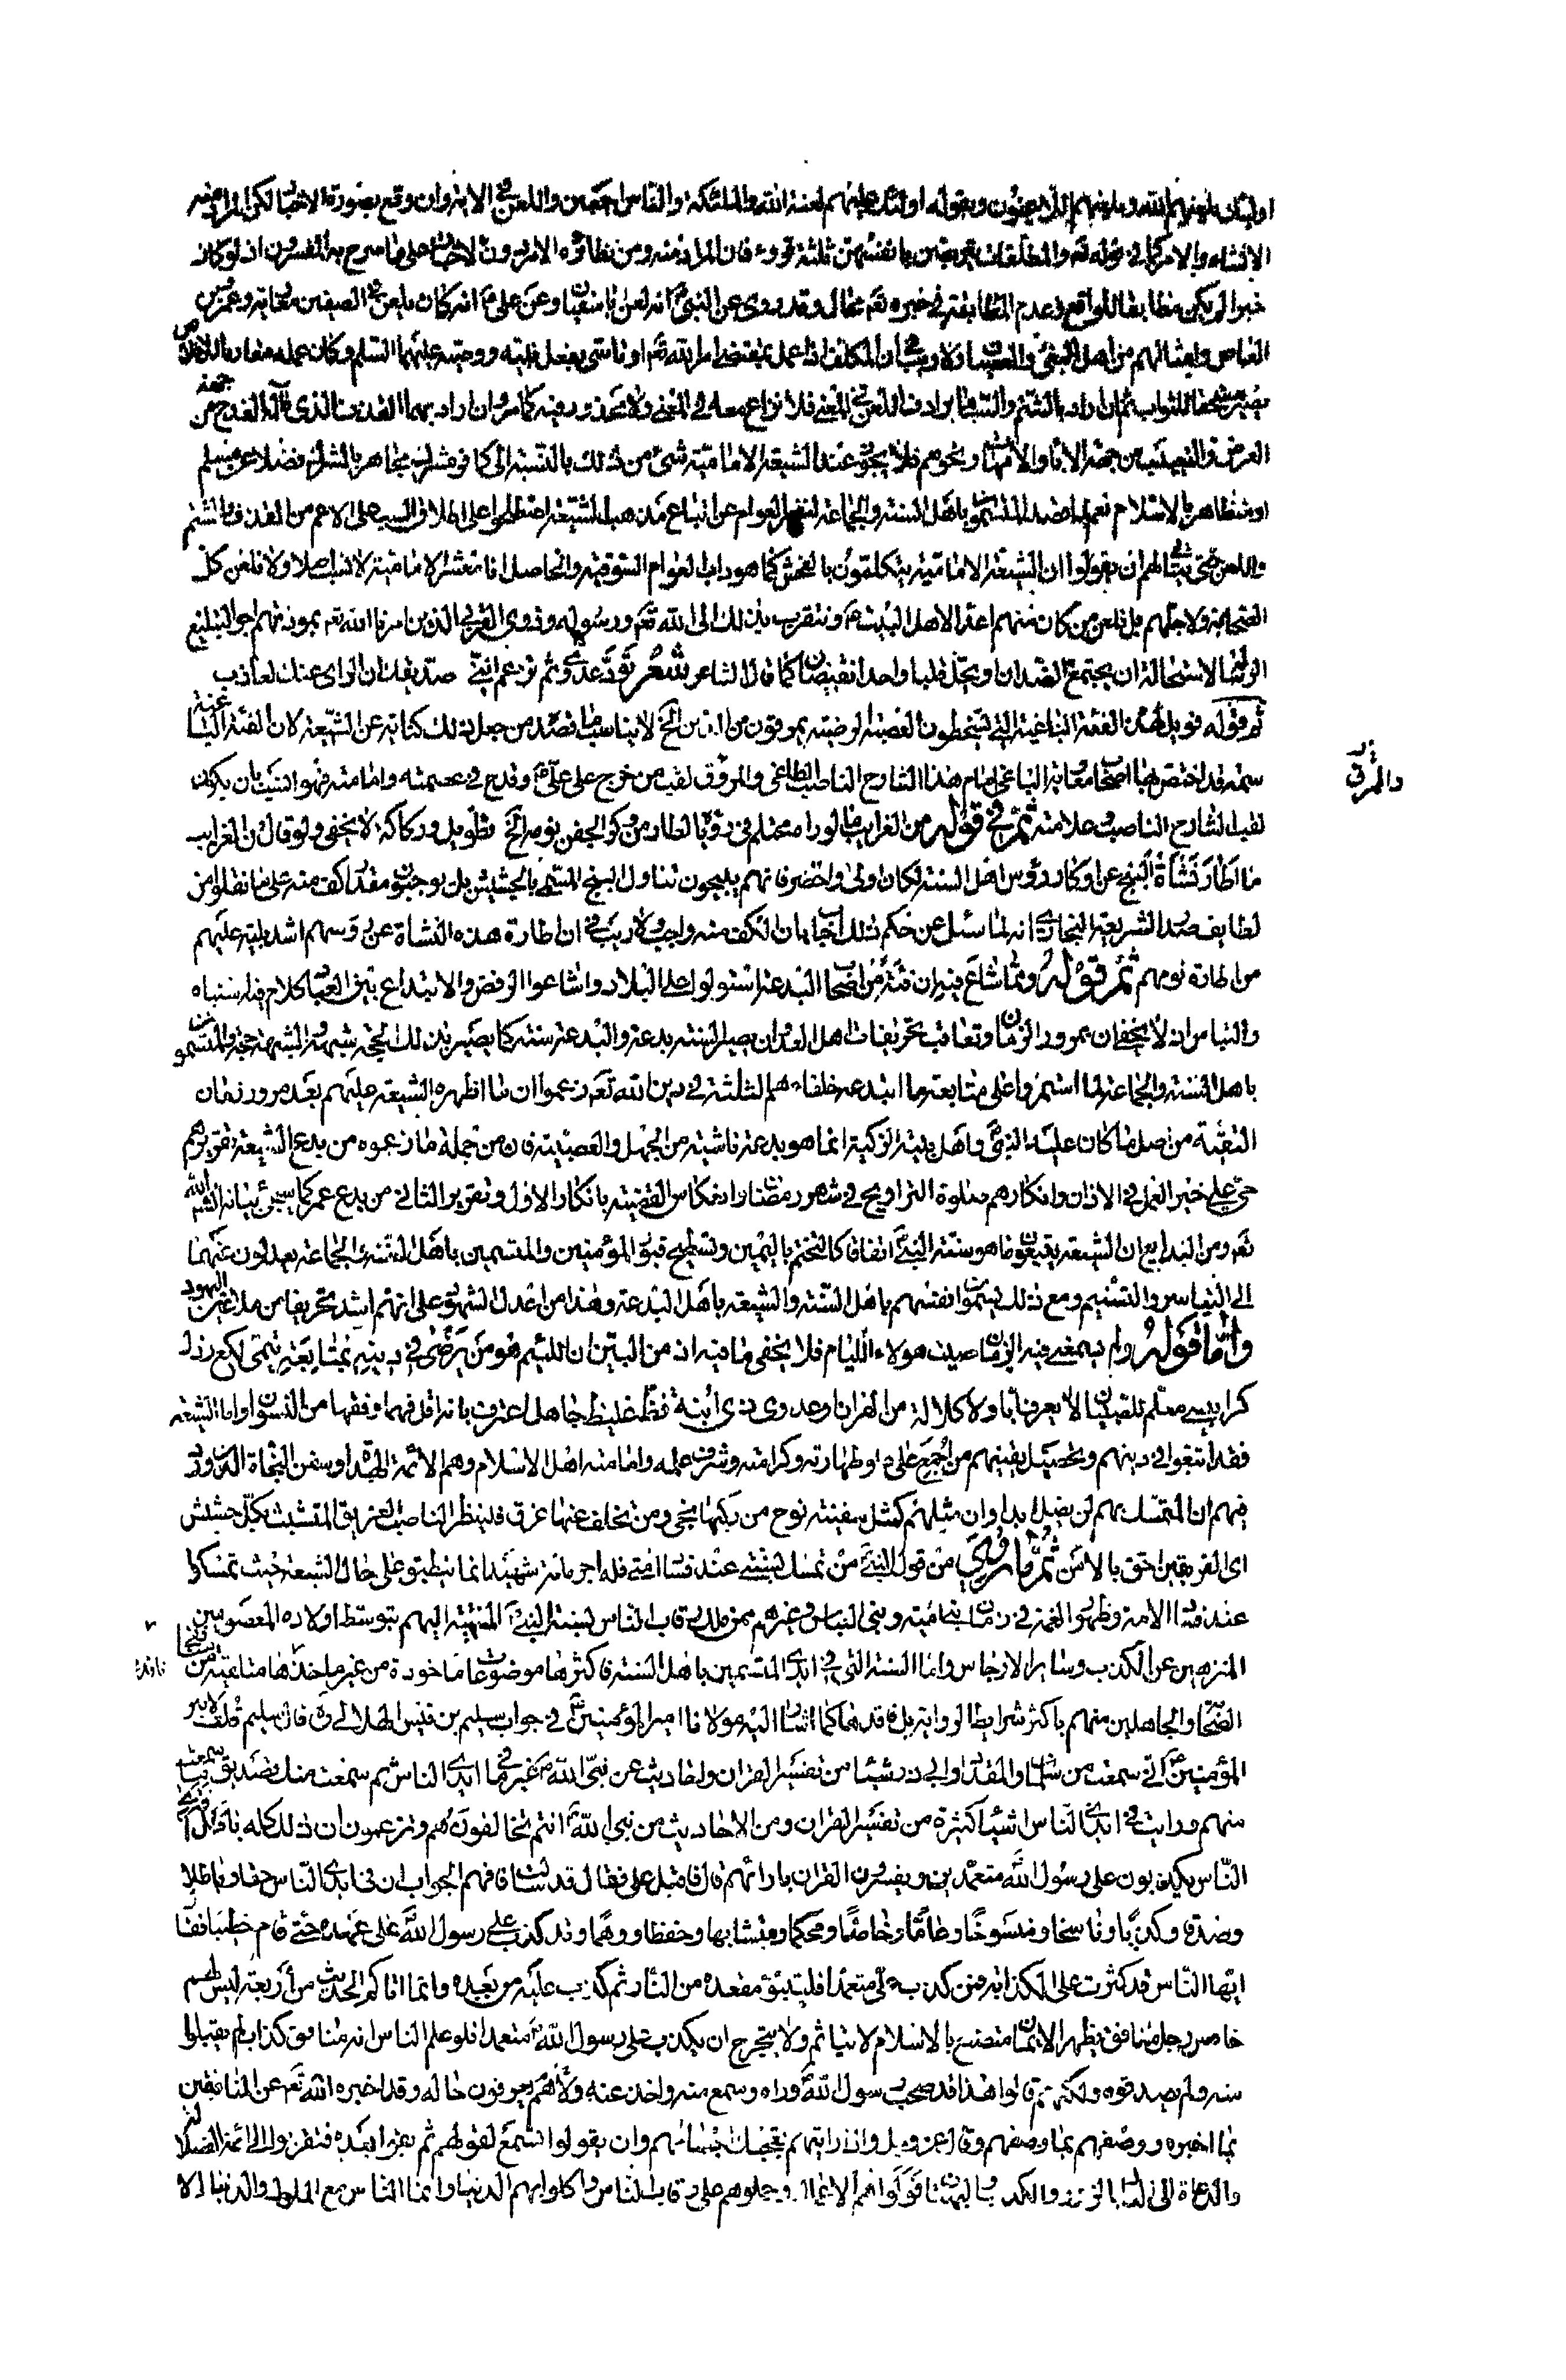 اولئك يلعنهم الله ويلعنهم اللاعنون وبقوله اولئك عليهم لعنة الله والملئكة والناس اجمعين واللعن في الاية وان وقع بصورة الاخبار لكن المراد منه
الانشاء والامر كما في قوله تعم والمطلقات يتربصن بانفسهن ثلثة قروء فان المراد منه ومن نظائره الامر دون الاخبار على ما صرح به المفسرون اذ لو كان
خبرا لم يكن مطابقا للواقع وعدم المطابقة في خبره تعم محال وقد روى عن النبي انه لعن ابا سفيان وعن علي انه كان يلعن في الصفين معاوية وعمرو بن
العاص وامثالهم من اهل البغي والعصيان ولا ريب في ان المكلف اذا عمل بمقتضى امر الله تعم او تاسى بفعل نبيه ووصيه عليهما السلم وكان عمله مقارنا للاخلاص
يصير مستحقا للثواب ثم ان اراد بالشتم والسب ما يرادف اللعن في المعنى فلا نزاع معه في المعنى ولا محذور فيه كما مر وان اراد بهما القذف الذي مآله القدح من جهة
العرض والتعييب من جهة الاباء والامهات ونحوهم فلا يجوز عند الشيعة الامامية شيء من ذلك بالنسبة الى كافر مشرك مجاهر بالشرك فضلا عن مسلم
او متظاهر بالاسلام نعم لما قصد المتسمون باهل السنة والجماعة تنفير العوام عن اتباع مذهب الشيعة اصطلحوا على اطلاق السب على الاعم من القذف والشتم
واللعن حتى يتأتى لهم ان يقولوا ان الشيعة الامامية يتكلمون بالفحش كما هو داب العوام السوقية والحاصل انا معشر الامامية لا نسب اصلا ولا نلعن كل
الصحابة ولا جلهم بل نلعن من كان منهم اعداء لاهل البيت ونتقرب بذلك الى الله تعم ورسوله وذوي القربى الذين امرنا الله تعم بمودتهم اجرا لتبليغ
الرسالة لاستحالة ان يجتمع الضدان او يحل قلبا واحدا نقيضان كما قال الشاعر شعر تود عدوي ثم تزعم انني صديقك ان الراي عنك لعازب
ثم قوله فويل لهذه الفئة الباغية التي يسخطون العصبة الرضية يمرقون من الدين الخ لا يناسب ما قصده من جعل ذلك كناية عن الشيعة لان الفئة الباغية
سمة قد اختص بها اصحاب معاوية الباغي امام هذا الشارح الناصب الطاغي والمروق لقب من خرج على علي وقدح في عصمته وامامته فهو انسب بان يكون
لقبا للشارح الناصب وعلامته ثم في قوله من الغرايب ما لو راه محتلم في رؤياه لطار من وكر الجفن نومه الخ تطويل وركاكة لا يخفى ولو قال من الغرايب
ما اطار نشأة البنج عن اوكار رؤس اهل السنة لكان اولى واخصر فانهم يبيحون تناول البنج المسمى بالحشيش بل يوجبون مقدار كف منه على ما نقلوا من
لطايف صدر الشريعة البخاري انه لما سئل عن حكم ذلك اجاب بان الكف منه واجب ولا ريب في ان اطارة هذه النشاة عن رؤسهم اشد بلية عليهم
من اطارة نومهم ثم قوله ومما شاع فيه ان فئة من اصحاب البدعة استولوا على البلاد واشاعوا الرفض والابتداع بين العباد كلام فيه اشتباه
والتباس اذ لا يخفى ان بمرور الزمان وتعاقب تحريفات اهل العدوان يصير السنة بدعة والبدعة سنة كما يصير بذلك الحجة شبهة والشبهة حجة والمتسمون
باهل السنة والجماعة لما استمروا على متابعة ما ابتدعه خلفاءهم الثلثة في دين الله تعم زعموا ان ما اظهره الشيعة عليهم بعد مرور زمان
التقية من اصل ما كان عليه النبي واهل بيته الزكية انما هو بدعة ناشية من الجهل والعصبية فان من جملة ما زعموه من بدع الشيعة تقريرهم
حي على خير العمل في الاذان وانكارهم صلوة التراويح في شهر رمضان وانعكاس القضية بانكار الاول وتقرير الثاني من بدع عمر كما سيجئ بيانه انشاء الله
تعم ومن البدايع ان الشيعة يتبعون ما هو سنة النبي اتفاقا كالتختم باليمين وتسطيح قبور المؤمنين والمتسمين باهل السنة والجماعة يعدلون عنهما
الى التياسر والتسنيم ومع ذلك يسمون انفسهم باهل السنة والشيعة باهل البدعة وهذا من اعدل الشهود على انهم اشد تحريفا من ملاعين اليهود
واما قوله ولم يسمع فيه الزمان صيت هولاء اللئام فلا يخفى ما فيه اذ من البين ان اللئيم هو من يرضى في دينه بمتابعة تيمي لكع رذل
كرابيسي معلم للصبيان لا يعرف ابا ولا كلالة من القران وعدوي ذي ابنة فظ غليظ جاهل اعترف بانه اقل فهما وفقها من النسوان واما الشيعة
فقد اتبعوا في دينهم وتحصيل يقينهم من اجمع على طهارته وكرامته وشرف علمه وامامته اهل الاسلام وهم الائمة الهداة وسفن النجاة الذين ورد
فيهم ان المتمسك بهم لن يضل ابدا وان مثلهم كمثل سفينة نوح من ركبها نجى ومن تخلف عنها غرق فلينظر الناصب الغريق المتشبث بكل حشيش
اي الفريقين احق بالامن ثم ما روى من قول النبي من تمسك بسنتي عند فساد امتي فله اجر مائة شهيد انما ينطبق على حال الشيعة حيث تمسكوا
عند فساد الامة وظهور الغمة في زمان بني امية وبني العباس وغيرهم ممن ملك رقاب الناس بسنة النبي المنتهية اليهم بتوسط اولاده المعصومين
المنزهين عن الكذب وسائر الارجاس واما السنة التي في ايدي المتسمين باهل السنة فاكثرها موضوعات ماخوذة من غير ماخذها متلقية من
الصحابة الجاهلين منهم باكثر شرايط الرواية بل فاقدها كما اشار اليه مولانا امير المؤمنين في جواب سليم بن قيس الهلالي ره قال سليم قلت لامير
المؤمنين اني سمعت من سلمان والمقداد وابي ذر شيئا من تفسير القران واحاديث عن نبي الله غير ما في ايدي الناس ثم سمعت منك تصديق ما سمعت
منهم ورايت في ايدي الناس اشياء كثيرة من تفسير القران ومن الاحاديث من نبي الله انتم تخالفونهم وتزعمون ان ذلك كله باطل افترى
الناس يكذبون على رسول الله متعمدين ويفسرون القران بارائهم قال فاقبل علي فقال قد سئلت فافهم الجواب ان في ايدي الناس حقا وباطلا
وصدقا وكذبا وناسخا ومنسوخا وعاما وخاصا ومحكما ومتشابها وحفظا ووهما وقد كذب على رسول الله على عهده حتى قام خطيبا فقال
ايها الناس قد كثرت علي الكذابة فمن كذب علي متعمدا فليتبوء مقعده من النار ثم كذب عليه من بعده وانما اتاكم الحديث من اربعة ليس لهم
خامس رجل منافق يظهر الايمان متصنع بالاسلام لا يتاثم ولا يتحرج ان يكذب على رسول الله متعمدا فلو علم الناس انه منافق كذاب لم يقبلوا
منه ولم يصدقوه ولكنهم قالوا هذا قد صحب رسول الله وراه وسمع منه واخذ عنه وهم لا يعرفون حاله وقد اخبره الله تعم عن المنافقين
بما اخبره ووصفهم بما وصفهم وقال عز وجل واذا رايتهم تعجبك اجسامهم وان يقولوا تسمع لقولهم ثم بقوا بعده فتقربوا الى ائمة الضلالة
والدعاة الى النار بالزور والكذب والبهتان فولوهم الاعمال وحملوهم على رقاب الناس واكلوا بهم الدنيا وانما الناس مع الملوك والدنيا الا